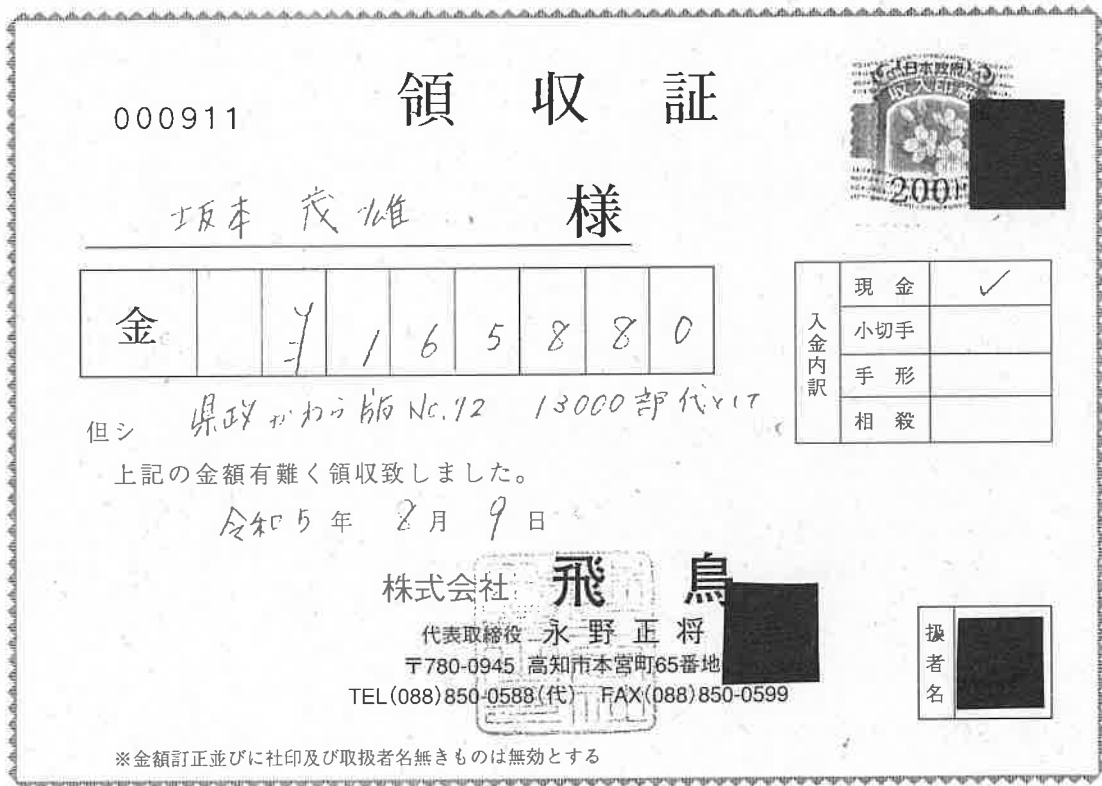 000911
領収証
日本政府
収入印紙
200円
坂本 茂雄 様
金 ¥165880
入金内訳
現金 ✓
小切手
手形
相殺
但シ 県政かわら版 No.72 13000部代として
上記の金額有難く領収致しました。
令和5年 8月 9日
株式会社 飛鳥
代表取締役 永野正将
〒780-0945 高知市本宮町65番地
TEL(088)850-0588(代) FAX(088)850-0599
扱者名
※金額訂正並びに社印及び取扱者名無きものは無効とする